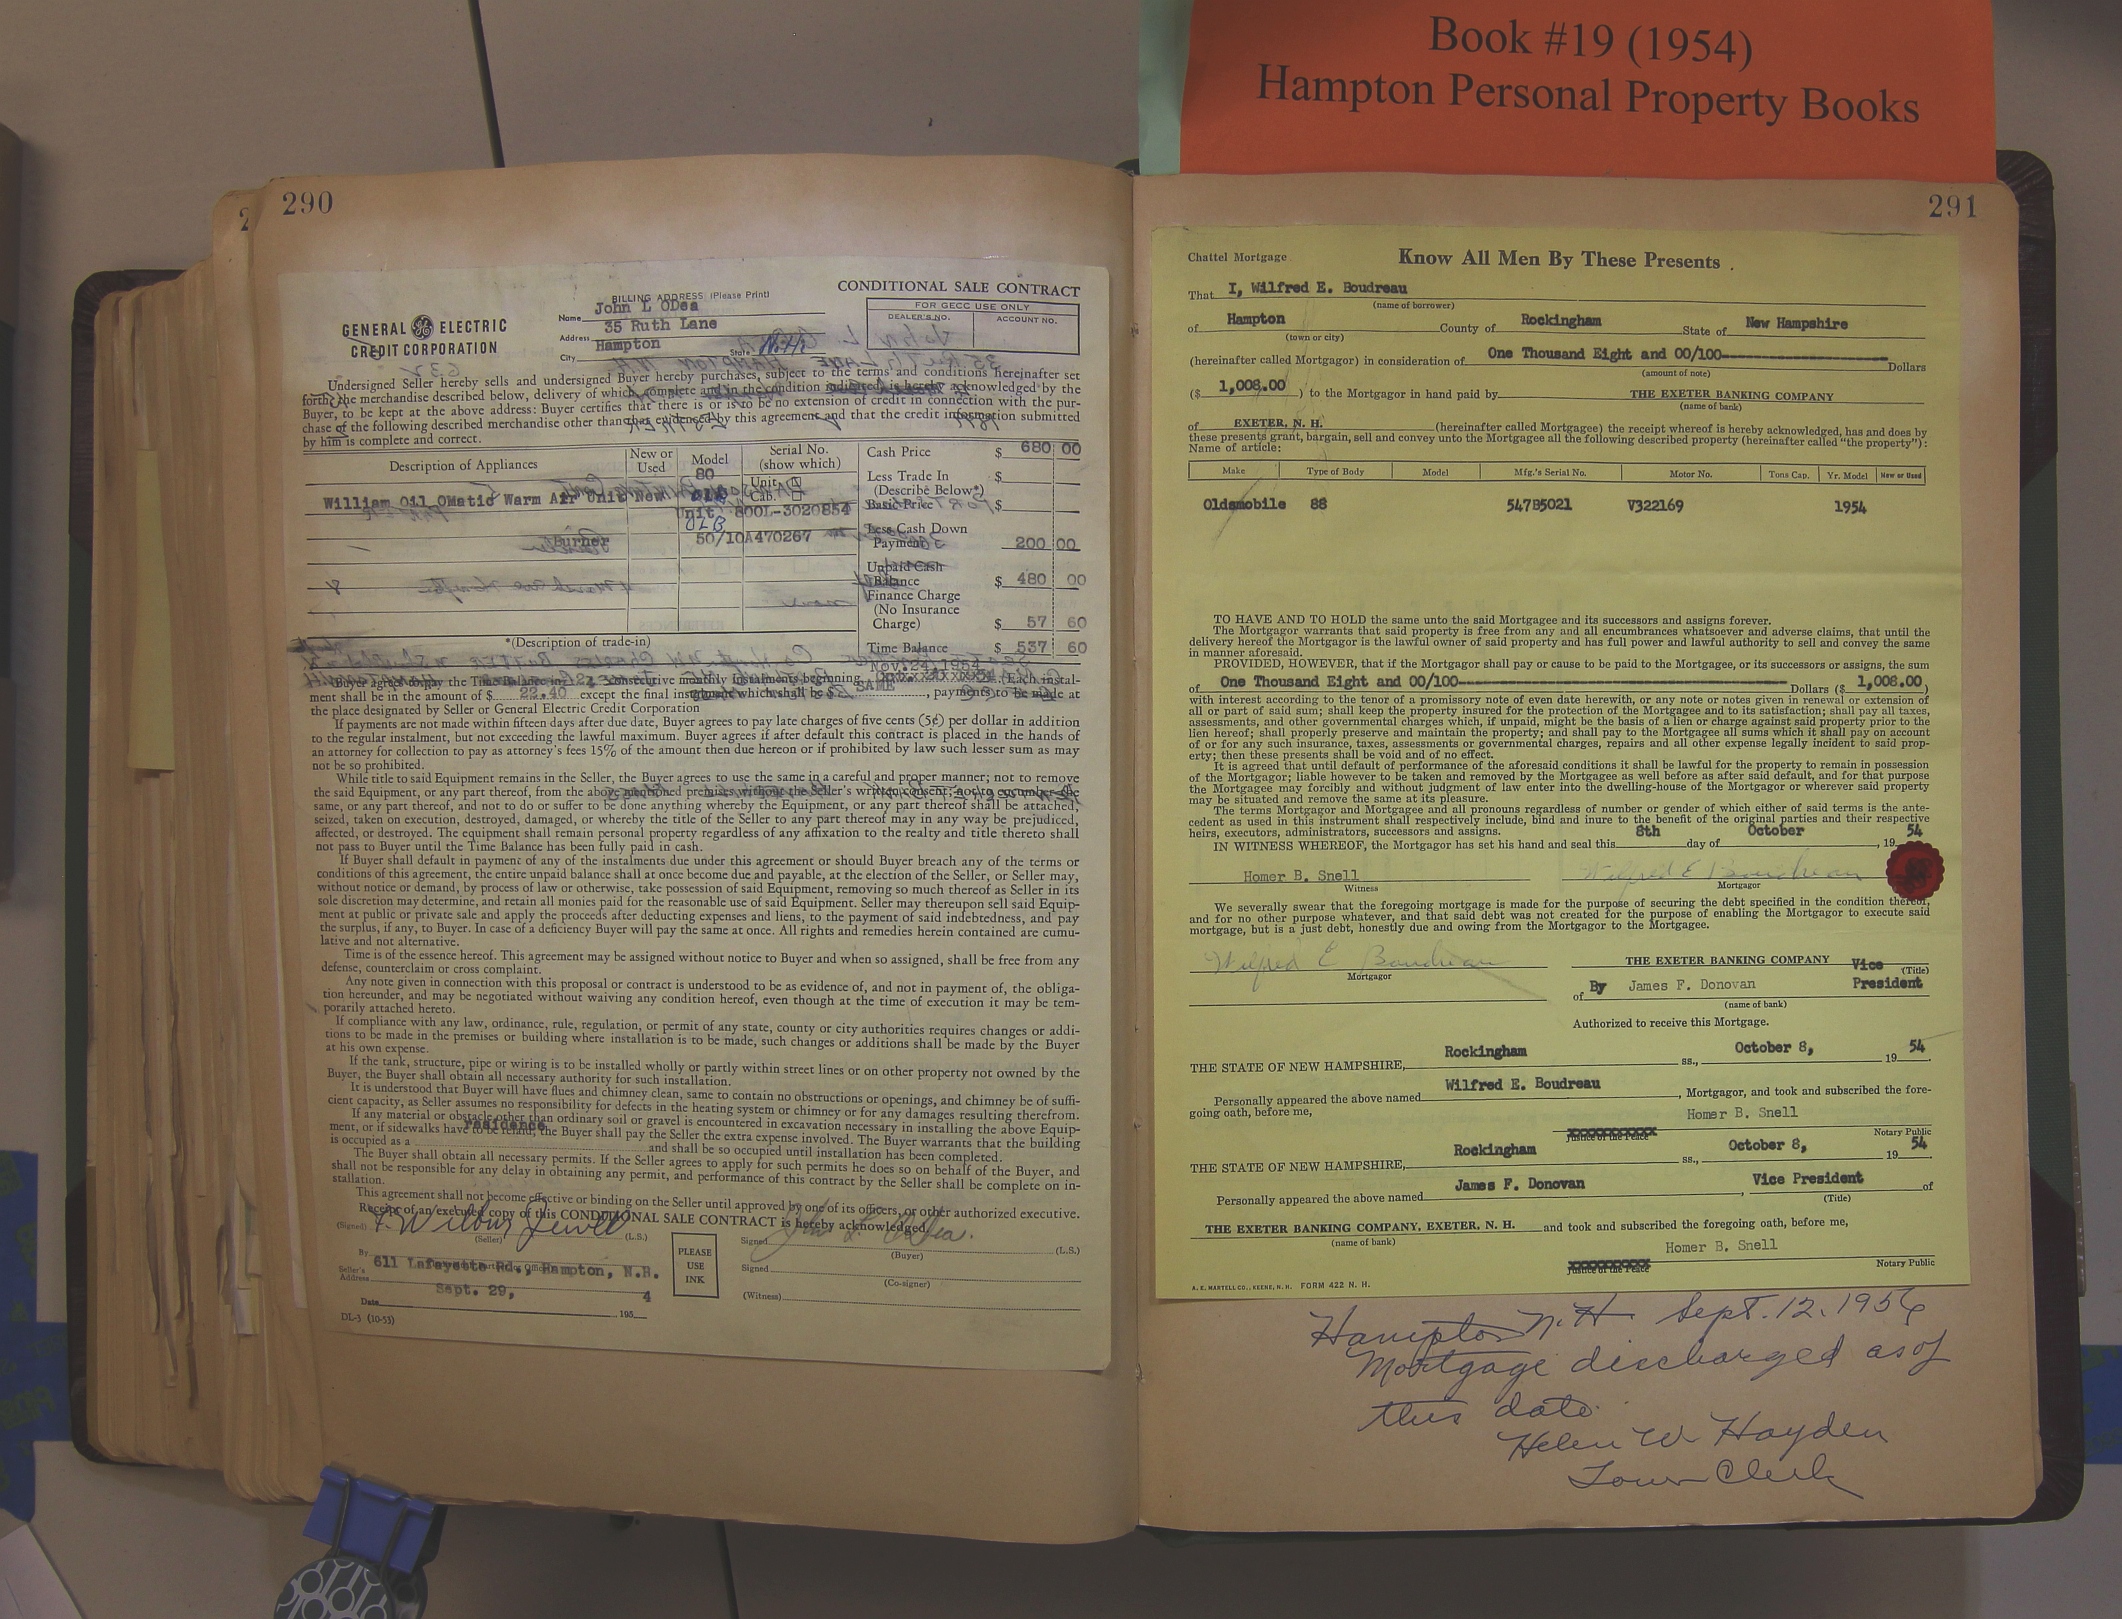 Book #19 (1954)
Hampton Personal Property Books
290
CONDITIONAL SALE CONTRACT
BILLING ADDRESS (Please Print)
GENERAL GE ELECTRIC
CREDIT CORPORATION
Name John L ODea
35 Ruth Lane
Address
Hampton State N.H.
City
FOR GECC USE ONLY
DEALER'S NO. ACCOUNT NO.
Undersigned Seller hereby sells and undersigned Buyer hereby purchases, subject to the terms and conditions hereinafter set
forth, the merchandise described below, delivery of which complete and in the condition indicated is hereby acknowledged by the
Buyer, to be kept at the above address: Buyer certifies that there is or is to be no extension of credit in connection with the pur-
chase of the following described merchandise other than that evidenced by this agreement and that the credit information submitted
by him is complete and correct.
Description of Appliances New or Used Model Serial No. (show which)
80
Unit
Cab.
William Oil OMatic Warm Air Unit New
Unit 800L-3020854
OLB
Burner 50/10A470267
Cash Price $ 680 00
Less Trade In $
(Describe Below*)
Basic Price $
Less Cash Down
Payment 200 00
Unpaid Cash
Balance $ 480 00
Finance Charge
(No Insurance
Charge) $ 57 60
Time Balance $ 537 60
*(Description of trade-in)
Nov. 24, 1954
Buyer agrees to pay the Time Balance in consecutive monthly instalments beginning Each instal-
ment shall be in the amount of $ 22.40 except the final instalment which shall be $ SAME, payments to be made at
the place designated by Seller or General Electric Credit Corporation
If payments are not made within fifteen days after due date, Buyer agrees to pay late charges of five cents (5¢) per dollar in addition
to the regular instalment, but not exceeding the lawful maximum. Buyer agrees if after default this contract is placed in the hands of
an attorney for collection to pay as attorney's fees 15% of the amount then due hereon or if prohibited by law such lesser sum as may
not be so prohibited.
While title to said Equipment remains in the Seller, the Buyer agrees to use the same in a careful and proper manner; not to remove
the said Equipment, or any part thereof, from the above mentioned premises without the Seller's written consent; not to encumber the
same, or any part thereof, and not to do or suffer to be done anything whereby the Equipment, or any part thereof shall be attached,
seized, taken on execution, destroyed, damaged, or whereby the title of the Seller to any part thereof may in any way be prejudiced,
affected, or destroyed. The equipment shall remain personal property regardless of any affixation to the realty and title thereto shall
not pass to Buyer until the Time Balance has been fully paid in cash.
If Buyer shall default in payment of any of the instalments due under this agreement or should Buyer breach any of the terms or
conditions of this agreement, the entire unpaid balance shall at once become due and payable, at the election of the Seller, or Seller may,
without notice or demand, by process of law or otherwise, take possession of said Equipment, removing so much thereof as Seller in its
sole discretion may determine, and retain all monies paid for the reasonable use of said Equipment. Seller may thereupon sell said Equip-
ment at public or private sale and apply the proceeds after deducting expenses and liens, to the payment of said indebtedness, and pay
the surplus, if any, to Buyer. In case of a deficiency Buyer will pay the same at once. All rights and remedies herein contained are cumu-
lative and not alternative.
Time is of the essence hereof. This agreement may be assigned without notice to Buyer and when so assigned, shall be free from any
defense, counterclaim or cross complaint.
Any note given in connection with this proposal or contract is understood to be as evidence of, and not in payment of, the obliga-
tion hereunder, and may be negotiated without waiving any condition hereof, even though at the time of execution it may be tem-
porarily attached hereto.
If compliance with any law, ordinance, rule, regulation, or permit of any state, county or city authorities requires changes or addi-
tions to be made in the premises or building where installation is to be made, such changes or additions shall be made by the Buyer
at his own expense.
If the tank, structure, pipe or wiring is to be installed wholly or partly within street lines or on other property not owned by the
Buyer, the Buyer shall obtain all necessary authority for such installation.
It is understood that Buyer will have flues and chimney clean, same to contain no obstructions or openings, and chimney be of suffi-
cient capacity, as Seller assumes no responsibility for defects in the heating system or chimney or for any damages resulting therefrom.
If any material or obstacle other than ordinary soil or gravel is encountered in excavation necessary in installing the above Equip-
ment, or if sidewalks have to be relaid, the Buyer shall pay the Seller the extra expense involved. The Buyer warrants that the building
is occupied as a residence and shall be so occupied until installation has been completed.
The Buyer shall obtain all necessary permits. If the Seller agrees to apply for such permits he does so on behalf of the Buyer, and
shall not be responsible for any delay in obtaining any permit, and performance of this contract by the Seller shall be complete on in-
stallation.
This agreement shall not become effective or binding on the Seller until approved by one of its officers, or other authorized executive.
Receipt of an executed copy of this CONDITIONAL SALE CONTRACT is hereby acknowledged.
(Signed) F. Wilbur Jewell (L.S.)
(Seller)
By
Seller's Address 611 Lafayette Rd., Hampton, N.H.
Date Sept. 29, 195 4
DL-3 (10-53)
PLEASE
USE
INK
Signed John L. O'Dea. (L.S.)
(Buyer)
Signed
(Co-signer)
(Witness)
291
Chattel Mortgage
Know All Men By These Presents
That I, Wilfred E. Boudreau
(name of borrower)
of Hampton County of Rockingham State of New Hampshire
(town or city)
(hereinafter called Mortgagor) in consideration of One Thousand Eight and 00/100 Dollars
(amount of note)
($ 1,008.00 ) to the Mortgagor in hand paid by THE EXETER BANKING COMPANY
(name of bank)
of EXETER, N. H. (hereinafter called Mortgagee) the receipt whereof is hereby acknowledged, has and does by
these presents grant, bargain, sell and convey unto the Mortgagee all the following described property (hereinafter called "the property"):
Name of article:
Make Type of Body Model Mfg.'s Serial No. Motor No. Tons Cap. Yr. Model New or Used
Oldsmobile 88 547B5021 V322169 1954
TO HAVE AND TO HOLD the same unto the said Mortgagee and its successors and assigns forever.
The Mortgagor warrants that said property is free from any and all encumbrances whatsoever and adverse claims, that until the
delivery hereof the Mortgagor is the lawful owner of said property and has full power and lawful authority to sell and convey the same
in manner aforesaid.
PROVIDED, HOWEVER, that if the Mortgagor shall pay or cause to be paid to the Mortgagee, or its successors or assigns, the sum
of One Thousand Eight and 00/100 Dollars ($ 1,008.00 )
with interest according to the tenor of a promissory note of even date herewith, or any note or notes given in renewal or extension of
all or part of said sum; shall keep the property insured for the protection of the Mortgagee and to its satisfaction; shall pay all taxes,
assessments, and other governmental charges which, if unpaid, might be the basis of a lien or charge against said property prior to the
lien hereof; shall properly preserve and maintain the property; and shall pay to the Mortgagee all sums which it shall pay on account
of or for any such insurance, taxes, assessments or governmental charges, repairs and all other expense legally incident to said prop-
erty; then these presents shall be void and of no effect.
It is agreed that until default of performance of the aforesaid conditions it shall be lawful for the property to remain in possession
of the Mortgagor; liable however to be taken and removed by the Mortgagee as well before as after said default, and for that purpose
the Mortgagee may forcibly and without judgment of law enter into the dwelling-house of the Mortgagor or wherever said property
may be situated and remove the same at its pleasure.
The terms Mortgagor and Mortgagee and all pronouns regardless of number or gender of which either of said terms is the ante-
cedent as used in this instrument shall respectively include, bind and inure to the benefit of the original parties and their respective
heirs, executors, administrators, successors and assigns.
IN WITNESS WHEREOF, the Mortgagor has set his hand and seal this 8th day of October, 19 54
Homer B. Snell Wilfred E Boudreau
Witness Mortgagor
We severally swear that the foregoing mortgage is made for the purpose of securing the debt specified in the condition thereof,
and for no other purpose whatever, and that said debt was not created for the purpose of enabling the Mortgagor to execute said
mortgage, but is a just debt, honestly due and owing from the Mortgagor to the Mortgagee.
Wilfred E Boudreau
Mortgagor
THE EXETER BANKING COMPANY Vice (Title)
of By James F. Donovan President
(name of bank)
Authorized to receive this Mortgage.
THE STATE OF NEW HAMPSHIRE, Rockingham ss., October 8, 19 54
Personally appeared the above named Wilfred E. Boudreau, Mortgagor, and took and subscribed the fore-
going oath, before me,
Homer B. Snell
Justice of the Peace Notary Public
THE STATE OF NEW HAMPSHIRE, Rockingham ss., October 8, 19 54
Personally appeared the above named James F. Donovan, Vice President of
(Title)
THE EXETER BANKING COMPANY, EXETER, N. H. and took and subscribed the foregoing oath, before me,
(name of bank)
Homer B. Snell
Justice of the Peace Notary Public
A. E. MARTELL CO., KEENE, N. H. FORM 422 N. H.
Hampton N.H. Sept. 12, 1956
Mortgage discharged as of
this date.
Helen W. Hayden
Town Clerk